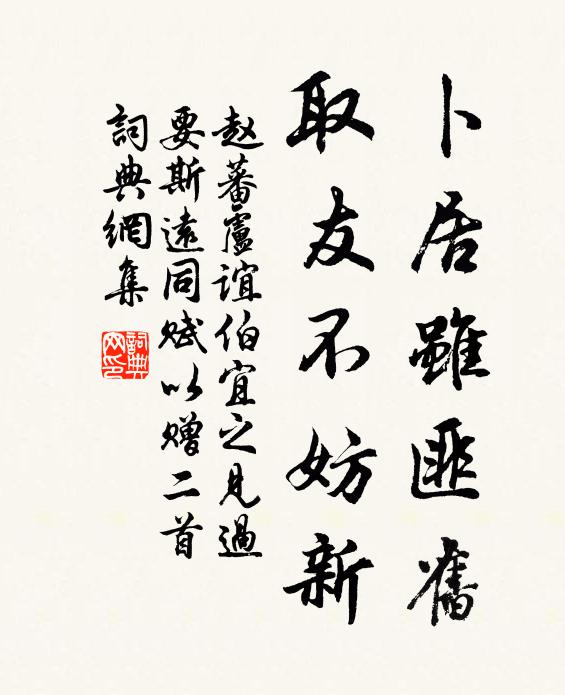 卜居雖匪舊
取友不妨新
赵蕃盧誼伯宜之見過
要斯遠同賦以贈二首
詞典網集
詞典網印